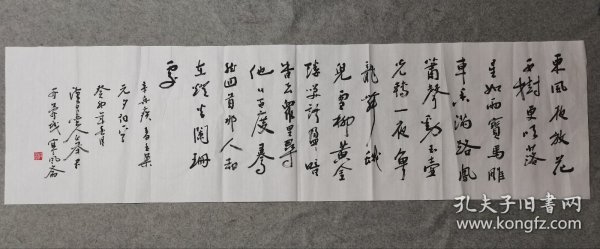 東風夜放花
千樹更吹落
星如雨寶馬雕
車香滿路鳳
簫聲動玉壺
光轉一夜魚
龍舞蛾
兒雪柳黃金
縷笑語盈暗
香去衆里尋
他千百度驀
然回首那人却
在燈火闌珊
處
辛弃疾青玉案
元夕
癸卯年
孔夫子旧书网
www.kongfz.com